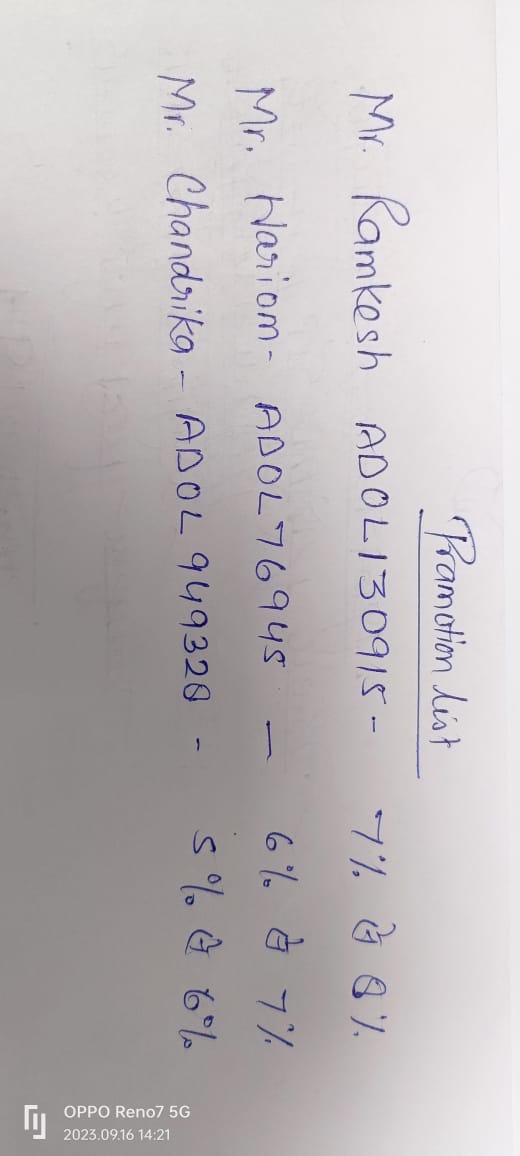 Pramotion list
Mr. Ramkesh ADOL130915- 7% से 8%
Mr. Hariom- ADOL76945 - 6% से 7%
Mr. Chandrika - ADOL949328 - 5% से 6%
OPPO Reno7 5G
2023.09.16 14:21